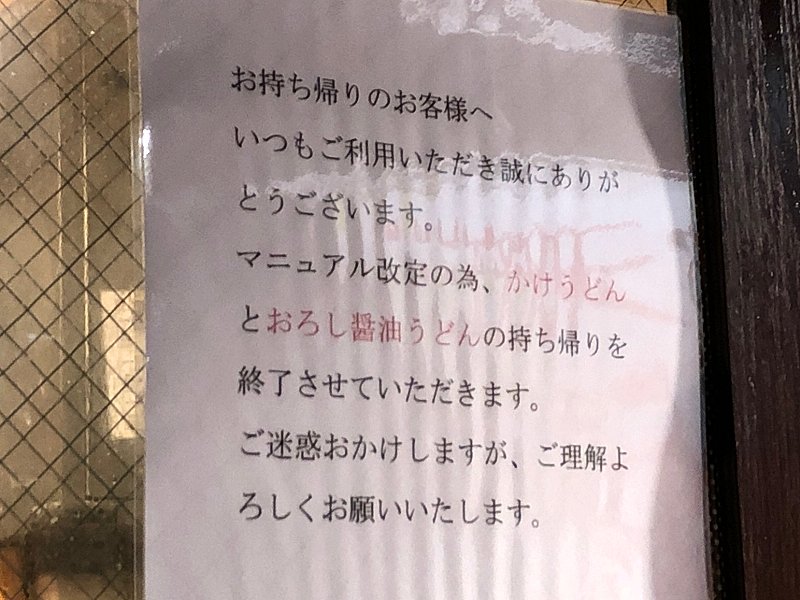 お持ち帰りのお客様へ
いつもご利用いただき誠にありが
とうございます。
マニュアル改定の為、かけうどん
とおろし醤油うどんの持ち帰りを
終了させていただきます。
ご迷惑おかけしますが、ご理解よ
ろしくお願いいたします。